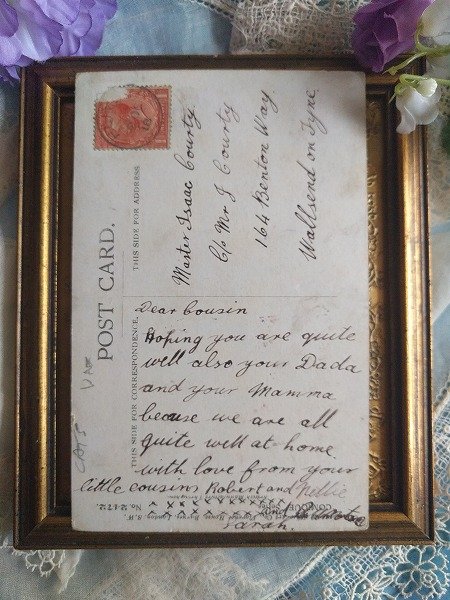 POST CARD.
THIS SIDE FOR ADDRESS
THIS SIDE FOR CORRESPONDENCE.
Master Isaac Courty.
C/o Mr J Courty
164 Benton Way
Wallsend on Tyne
Dear Cousin
Hoping you are quite
well also your Dada
and your Mamma
becuse we are all
quite well at home
with love from your
little cousins Robert and Nellie
Sarah.
CATS